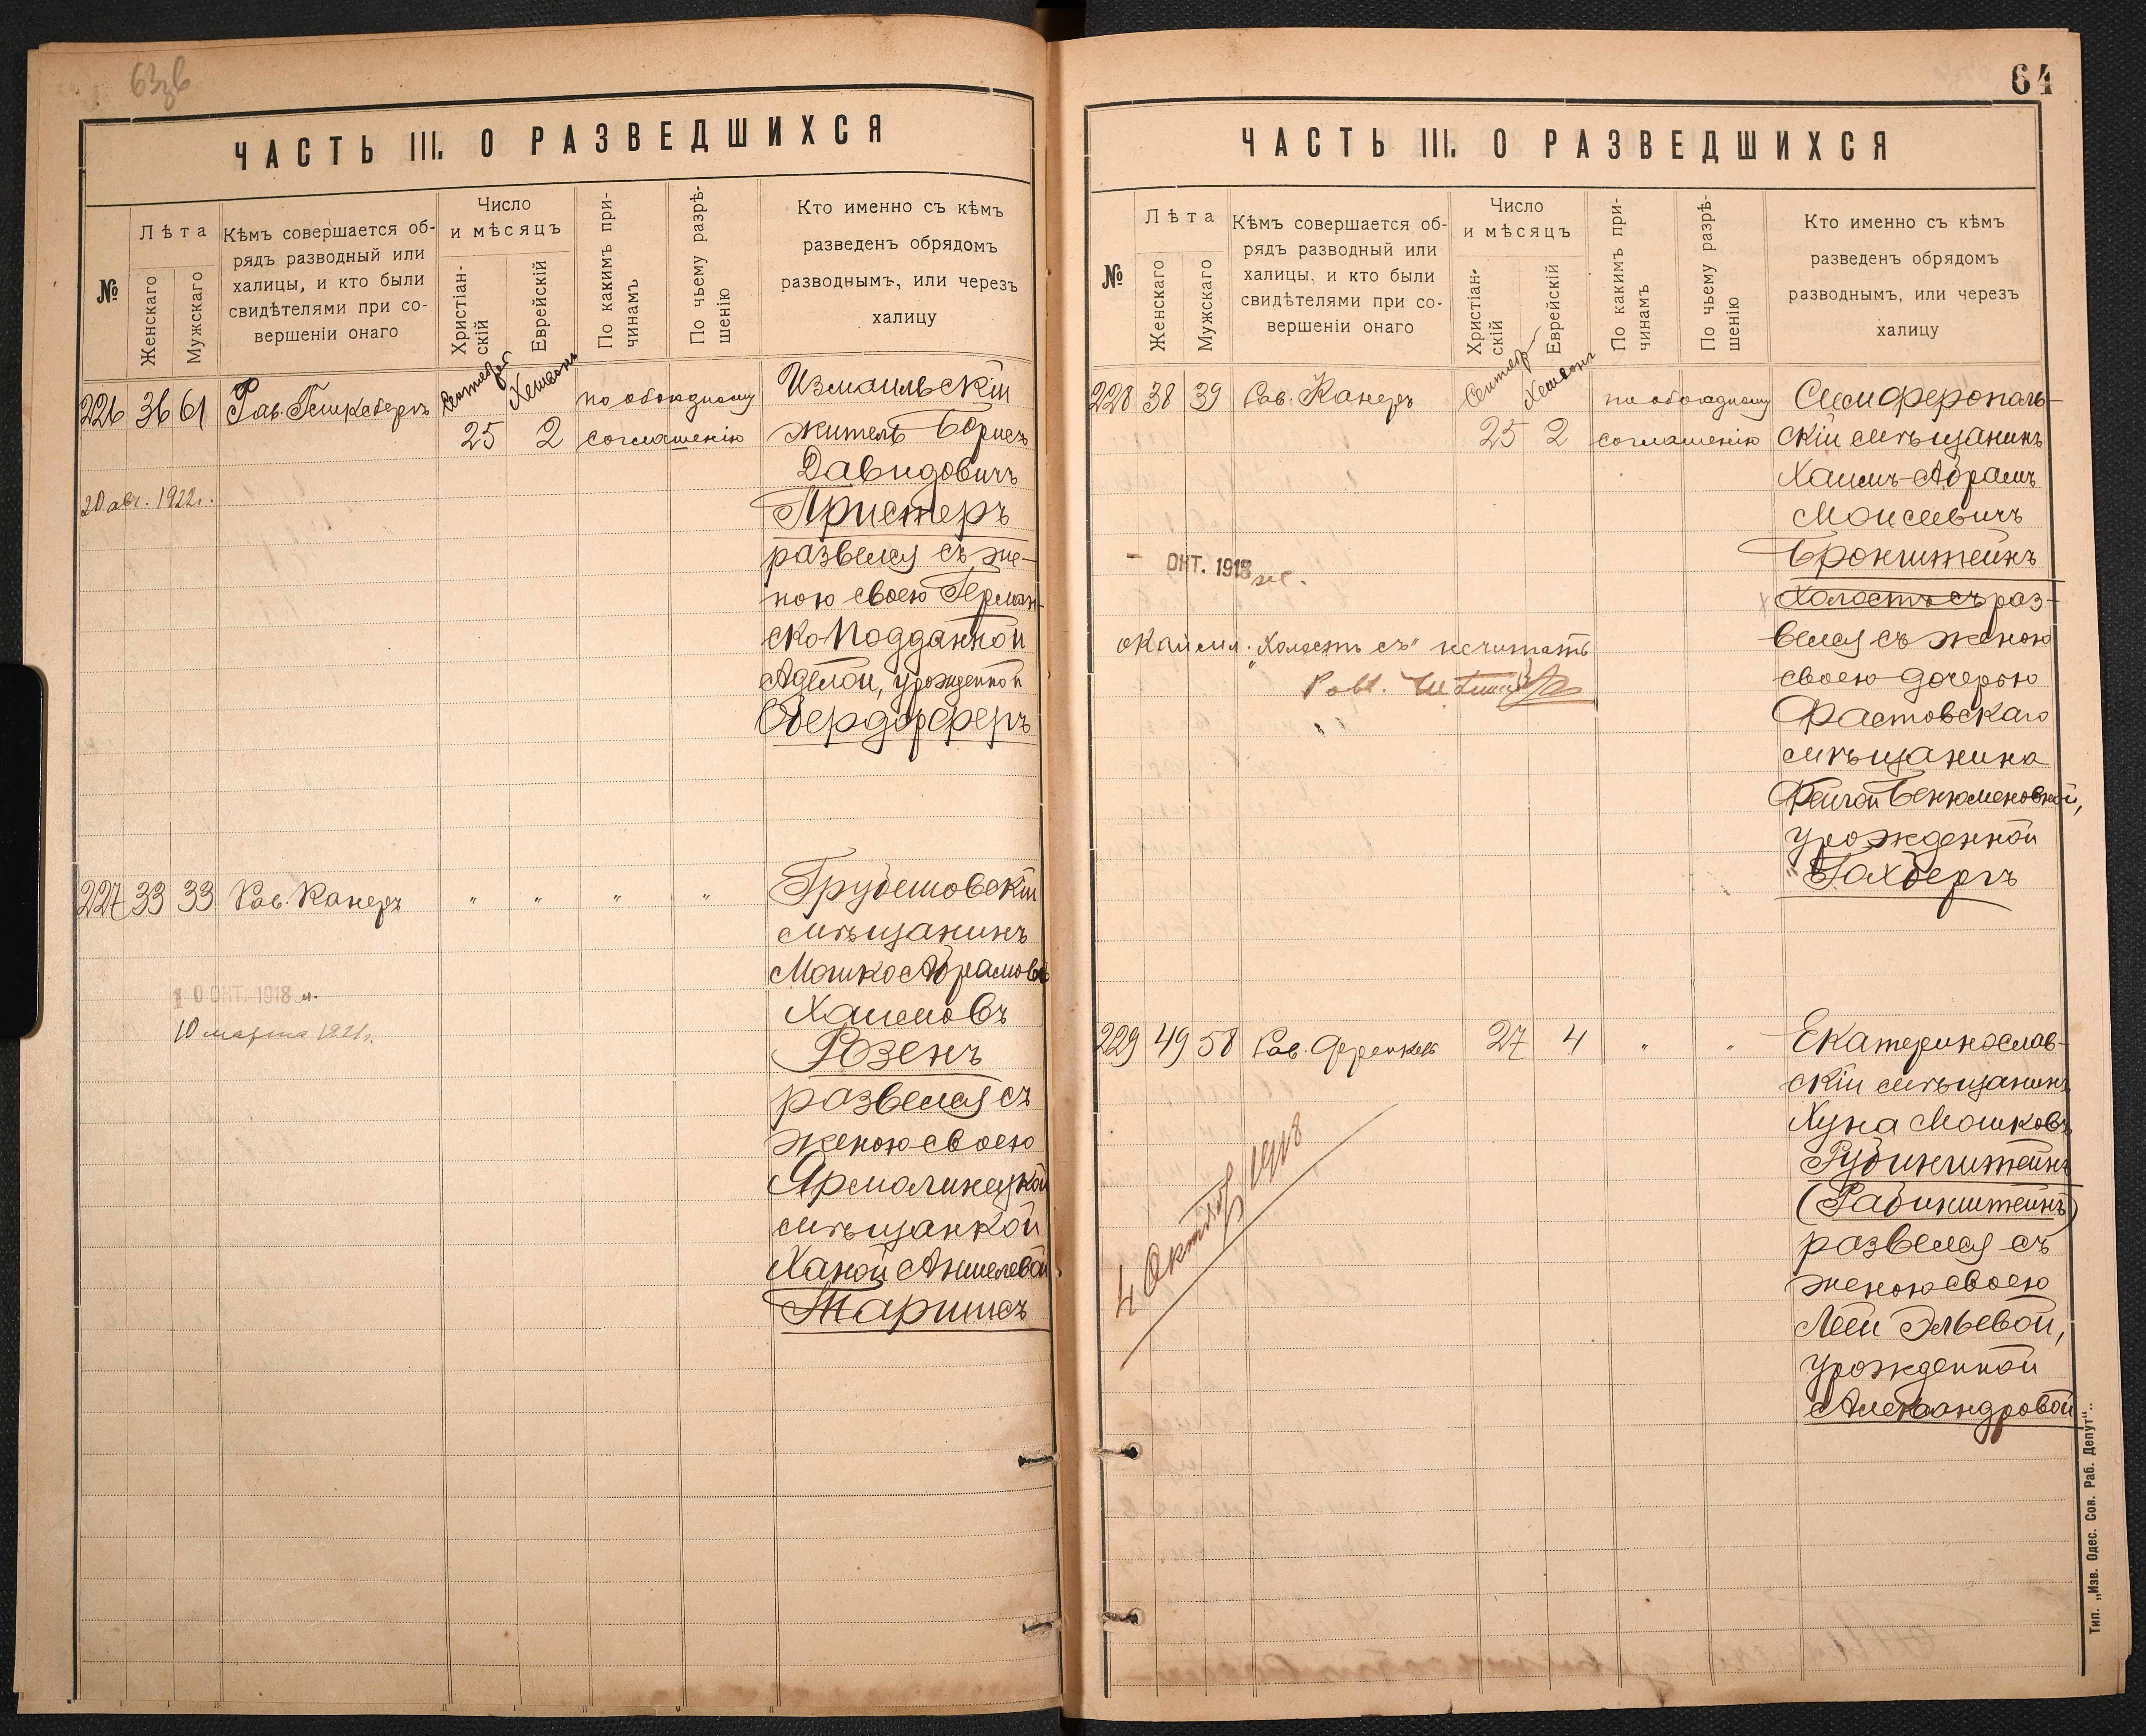 63зв
ЧАСТЬ III. О РАЗВЕДШИХСЯ
№
Лѣта
Женскаго
Мужскаго
Кѣмъ совершается об-
рядъ разводный или
халицы, и кто были
свидѣтелями при со-
вершеніи онаго
Число
и мѣсяцъ
Христіан-
скій
Еврейскій
По какимъ при-
чинамъ
По чьему разрѣ-
шенію
Кто именно съ кѣмъ
разведенъ обрядомъ
разводнымъ, или черезъ
халицу
226 36 61 Рав.
Хешвонъ
25 2
по обоюдному
соглашенію
Измаильскій
житель Борисъ
Давидовичъ
Пристеръ
развелся съ же-
ною своею Герман-
ско-Подданной
Аделой, урожденной
Обердорферъ
20 авг. 1922г.
227 33 33 Рав. Канеръ " " " "
Грубешовскій
мѣщанинъ
Мошко Абрамовъ
Хаимовъ
Розенъ
развелся съ
женою своею
Ярмолинецкой
мѣщанкой
Ханой Аншелевой
Таришсъ
10 ОКТ. 1918 м.
10 марта 1921г.
64
ЧАСТЬ III. О РАЗВЕДШИХСЯ
№
Лѣта
Женскаго
Мужскаго
Кѣмъ совершается об-
рядъ разводный или
халицы, и кто были
свидѣтелями при со-
вершеніи онаго
Число
и мѣсяцъ
Христіан-
скій
Еврейскій
По какимъ при-
чинамъ
По чьему разрѣ-
шенію
Кто именно съ кѣмъ
разведенъ обрядомъ
разводнымъ, или черезъ
халицу
228 38 39 Рав. Канеръ
Хешвонъ
25 2
по обоюдному
соглашенію
Симферополь-
скій мѣщанинъ
Хаимъ-Абрамъ
Моисеевичъ
Бронштейнъ
Холостъ съ раз-
велся съ женою
своею дочерью
Фастовскаго
мѣщанина
Фейгой Бенюменовной,
урожденной
Гахбергъ
- ОКТ. 1918 ж.
окаймл. „Холостъ съ" нечитать
Равв.
229 49 58 Рав. 27 4 " "
Екатеринослав-
скій мѣщанинъ
Хуна Мошковъ
Рубинштейнъ
(Рабинштейнъ)
развелся съ
женою своею
Леей Эльевой,
урожденной
Александровой
4 Октября 1918
Тип. „Изв. Одес. Сов. Раб. Депут".